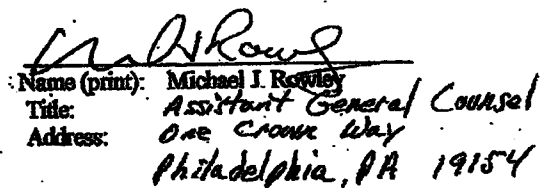 Name (print): Michael J. Rowley
Title: Assistant General Counsel
Address: One Crown Way
Philadelphia, PA 19154